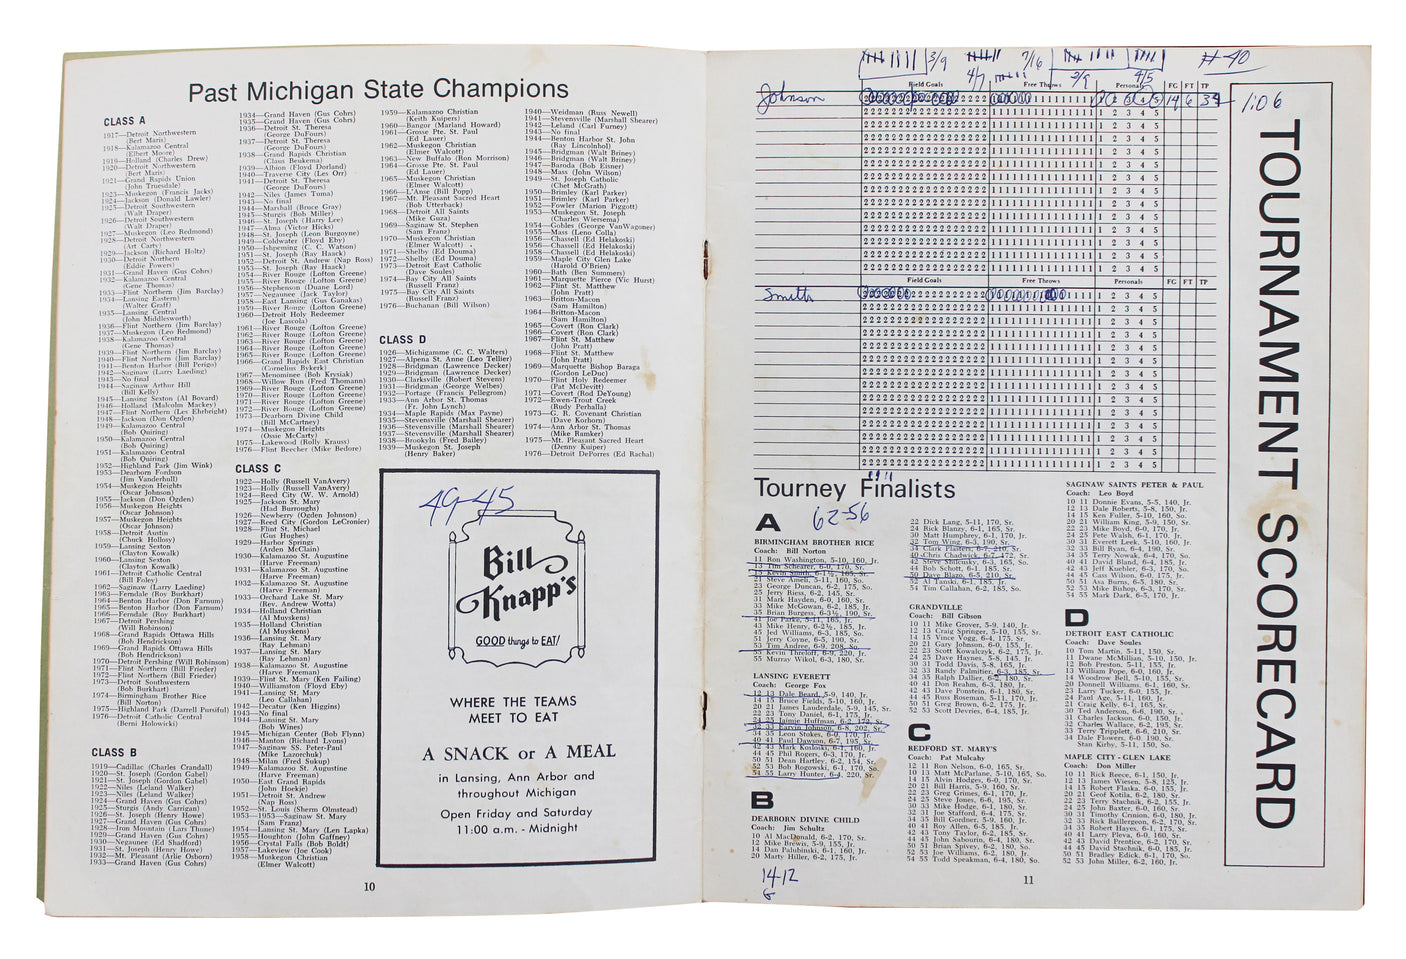 Past Michigan State Champions
CLASS A
1917—Detroit Northwestern
(Bert Maris)
1918—Kalamazoo Central
(Elbert Moore)
1919—Holland (Charles Drew)
1920—Detroit Northwestern
(Bert Maris)
1921—Grand Rapids Union
(John Truesdale)
1923—Muskegon (Francis Jacks)
1924—Jackson (Donald Lawler)
1925—Detroit Southwestern
(Walt Draper)
1926—Detroit Southwestern
(Walt Draper)
1927—Muskegon (Leo Redmond)
1928—Detroit Northwestern
(Art Carty)
1929—Jackson (Richard Holtz)
1930—Detroit Northern
(Eddie Powers)
1931—Grand Haven (Gus Cohrs)
1932—Kalamazoo Central
(Gene Thomas)
1933—Flint Northern (Jim Barclay)
1934—Lansing Eastern
(Walter Graff)
1935—Lansing Central
(John Middlesworth)
1936—Flint Northern (Jim Barclay)
1937—Muskegon (Leo Redmond)
1938—Kalamazoo Central
(Gene Thomas)
1939—Flint Northern (Jim Barclay)
1940—Flint Northern (Jim Barclay)
1941—Benton Harbor (Bill Perigo)
1942—Saginaw (Larry Laeding)
1943—No final
1944—Saginaw Arthur Hill
(Bill Kelly)
1945—Lansing Sexton (Al Bovard)
1946—Holland (Malcolm Mackey)
1947—Flint Northern (Les Ehrbright)
1948—Jackson (Don Ogden)
1949—Kalamazoo Central
(Bob Quiring)
1950—Kalamazoo Central
(Bob Quiring)
1951—Kalamazoo Central
(Bob Quiring)
1952—Highland Park (Jim Wink)
1953—Dearborn Fordson
(Jim Vanderhull)
1954—Muskegon Heights
(Oscar Johnson)
1955—Jackson (Don Ogden)
1956—Muskegon Heights
(Oscar Johnson)
1957—Muskegon Heights
(Oscar Johnson)
1958—Detroit Austin
(Chuck Hollosy)
1959—Lansing Sexton
(Clayton Kowalk)
1960—Lansing Sexton
(Clayton Kowalk)
1961—Detroit Catholic Central
(Bill Foley)
1962—Saginaw (Larry Laeding)
1963—Ferndale (Roy Burkhart)
1964—Benton Harbor (Don Farnum)
1965—Benton Harbor (Don Farnum)
1966—Ferndale (Roy Burkhart)
1967—Detroit Pershing
(Will Robinson)
1968—Grand Rapids Ottawa Hills
(Bob Hendrickson)
1969—Grand Rapids Ottawa Hills
(Bob Hendrickson)
1970—Detroit Pershing (Will Robinson)
1971—Flint Northern (Bill Frieder)
1972—Flint Northern (Bill Frieder)
1973—Detroit Southwestern
(Bob Burkhart)
1974—Birmingham Brother Rice
(Bill Norton)
1975—Highland Park (Darrell Pursiful)
1976—Detroit Catholic Central
(Berni Holowicki)
CLASS B
1919—Cadillac (Charles Crandall)
1920—St. Joseph (Gordon Gabel)
1921—St. Joseph (Gordon Gabel)
1922—Niles (Leland Walker)
1923—Niles (Leland Walker)
1924—Grand Haven (Gus Cohrs)
1925—Sturgis (Andy Carrigan)
1926—St. Joseph (Henry Howe)
1927—Grand Haven (Gus Cohrs)
1928—Iron Mountain (Lars Thune)
1929—Grand Haven (Gus Cohrs)
1930—Negaunee (Ed Shadford)
1931—St. Joseph (Henry Howe)
1932—Mt. Pleasant (Arlie Osborn)
1933—Grand Haven (Gus Cohrs)
1934—Grand Haven (Gus Cohrs)
1935—Grand Haven (Gus Cohrs)
1936—Detroit St. Theresa
(George DuFours)
1937—Detroit St. Theresa
(George DuFours)
1938—Grand Rapids Christian
(Claus Beukema)
1939—Albion (Floyd Dorland)
1940—Traverse City (Les Orr)
1941—Detroit St. Theresa
(George DuFours)
1942—Niles (James Toma)
1943—No final
1944—Marshall (Bruce Gray)
1945—Sturgis (Bob Miller)
1946—St. Joseph (Harry Lee)
1947—Alma (Victor Hicks)
1948—St. Joseph (Leon Burgoyne)
1949—Coldwater (Floyd Eby)
1950—Ishpeming (C. C. Watson)
1951—St. Joseph (Ray Haack)
1952—Detroit St. Andrew (Nap Ross)
1953—St. Joseph (Ray Haack)
1954—River Rouge (Lofton Greene)
1955—River Rouge (Lofton Greene)
1956—Stephenson (Duane Lord)
1957—Negaunee (Jack Taylor)
1958—East Lansing (Gus Ganakas)
1959—River Rouge (Lofton Greene)
1960—Detroit Holy Redeemer
(Joe Lascola)
1961—River Rouge (Lofton Greene)
1962—River Rouge (Lofton Greene)
1963—River Rouge (Lofton Greene)
1964—River Rouge (Lofton Greene)
1965—River Rouge (Lofton Greene)
1966—Grand Rapids East Christian
(Cornelius Bykerk)
1967—Menominee (Bob Krysiak)
1968—Willow Run (Fred Thomann)
1969—River Rouge (Lofton Greene)
1970—River Rouge (Lofton Greene)
1971—River Rouge (Lofton Greene)
1972—River Rouge (Lofton Greene)
1973—Dearborn Divine Child
(Bill McCartney)
1974—Muskegon Heights
(Ossie McCarty)
1975—Lakewood (Rolly Krauss)
1976—Flint Beecher (Mike Bedore)
CLASS C
1922—Holly (Russell VanAvery)
1923—Holly (Russell VanAvery)
1924—Reed City (W. W. Arnold)
1925—Jackson St. Mary
(Had Burroughs)
1926—Newberry (Ogden Johnson)
1927—Reed City (Gordon LeCronier)
1928—Flint St. Michael
(Gus Hughes)
1929—Harbor Springs
(Arden McClain)
1930—Kalamazoo St. Augustine
(Harve Freeman)
1931—Kalamazoo St. Augustine
(Harve Freeman)
1932—Kalamazoo St. Augustine
(Harve Freeman)
1933—Orchard Lake St. Mary
(Rev. Andrew Wotta)
1934—Holland Christian
(Al Muyskens)
1935—Holland Christian
(Al Muyskens)
1936—Lansing St. Mary
(Ray Lehman)
1937—Lansing St. Mary
(Ray Lehman)
1938—Kalamazoo St. Augustine
(Harve Freeman)
1939—Flint St. Mary (Ken Failing)
1940—Williamston (Floyd Eby)
1941—Lansing St. Mary
(Leo Callahan)
1942—Decatur (Ken Higgins)
1943—No final
1944—Lansing St. Mary
(Bob Wines)
1945—Michigan Center (Bob Flynn)
1946—Manton (Richard Lyons)
1947—Saginaw SS. Peter-Paul
(Mike Lazorchuk)
1948—Milan (Fred Sukup)
1949—Kalamazoo St. Augustine
(Harve Freeman)
1950—East Grand Rapids
(John Hoekje)
1951—Detroit St. Andrew
(Nap Ross)
1952—St. Louis (Sherm Olmstead)
1953—1953—Saginaw St. Mary
(Sam Franz)
1954—Lansing St. Mary (Len Lapka)
1955—Houghton (John Gaffney)
1956—Crystal Falls (Bob Boldt)
1957—Lakeview (Joe Cook)
1958—Muskegon Christian
(Elmer Walcott)
1959—Kalamazoo Christian
(Keith Kuipers)
1960—Bangor (Marland Howard)
1961—Grosse Pte. St. Paul
(Ed Lauer)
1962—Muskegon Christian
(Elmer Walcott)
1963—New Buffalo (Ron Morrison)
1964—Grosse Pte. St. Paul
(Ed Lauer)
1965—Muskegon Christian
(Elmer Walcott)
1966—L'Anse (Bill Popp)
1967—Mt. Pleasant Sacred Heart
(Bob Utterback)
1968—Detroit All Saints
(Mike Guza)
1969—Saginaw St. Stephen
(Sam Franz)
1970—Muskegon Christian
(Elmer Walcott)
1971—Shelby (Ed Douma)
1972—Shelby (Ed Douma)
1973—Detroit East Catholic
(Dave Soules)
1974—Bay City All Saints
(Russell Franz)
1975—Bay City All Saints
(Russell Franz)
1976—Buchanan (Bill Wilson)
CLASS D
1926—Michigamme (C. C. Walters)
1927—Alpena St. Anne (Leo Tellier)
1928—Bridgman (Lawrence Decker)
1929—Bridgman (Lawrence Decker)
1930—Clarkville (Robert Stevens)
1931—Bridgman (George Welbes)
1932—Portage (Francis Pellegrom)
1933—Ann Arbor St. Thomas
(Fr. John Lynch)
1934—Maple Rapids (Max Payne)
1935—Stevensville (Marshall Shearer)
1936—Stevensville (Marshall Shearer)
1937—Stevensville (Marshall Shearer)
1938—Brookyln (Fred Bailey)
1939—Muskegon St. Joseph
(Henry Baker)
1940—Weidman (Russ Newell)
1941—Stevensville (Marshall Shearer)
1942—Leland (Carl Furney)
1943—No final
1944—Benton Harbor St. John
(Ray Lincolnhol)
1945—Bridgman (Walt Briney)
1946—Bridgman (Walt Briney)
1947—Baroda (Bob Eisner)
1948—Mass (John Wilson)
1949—St. Joseph Catholic
(Chet McGrath)
1950—Brimley (Karl Parker)
1951—Brimley (Karl Parker)
1952—Fowler (Marion Piggott)
1953—Muskegon St. Joseph
(Charles Wiersema)
1954—Gobles (George VanWagoner)
1955—Mass (Leno Colla)
1956—Chassell (Ed Helakoski)
1957—Chassell (Ed Helakoski)
1958—Chassell (Ed Helakoski)
1959—Maple City Glen Lake
(Harold O'Brien)
1960—Bath (Ben Summers)
1961—Marquette Pierce (Vic Hurst)
1962—Flint St. Matthew
(John Pratt)
1963—Britton-Macon
(Sam Hamilton)
1964—Britton-Macon
(Sam Hamilton)
1965—Covert (Ron Clark)
1966—Covert (Ron Clark)
1967—Flint St. Matthew
(John Pratt)
1968—Flint St. Matthew
(John Pratt)
1969—Marquette Bishop Baraga
(Gordon LeDuc)
1970—Flint Holy Redeemer
(Pat McDevitt)
1971—Covert (Rod DeYoung)
1972—Ewen-Trout Creek
(Rudy Perhalla)
1973—G. R. Covenant Christian
(Dave Korhorn)
1974—Ann Arbor St. Thomas
(Mike Ramker)
1975—Mt. Pleasant Sacred Heart
(Denny Kuiper)
1976—Detroit DePorres (Ed Rachal)
49-45
Bill
Knapp's
GOOD things to EAT!
WHERE THE TEAMS
MEET TO EAT
A SNACK or A MEAL
in Lansing, Ann Arbor and
throughout Michigan
Open Friday and Saturday
11:00 a.m. - Midnight
10
3/9
7/16
4/7
2/9
4/5
#40
Field Goals Free Throws Personals FG FT TP
Johnson 14 6 34
1:06
Field Goals Free Throws Personals FG FT TP
Smith
TOURNAMENT SCORECARD
Tourney Finalists
62-56
A
BIRMINGHAM BROTHER RICE
Coach: Bill Norton
11 Ron Washington, 5-10, 160, Jr.
13 Tim Shearer, 6-0, 170, Sr.
15 Kevin Smith, 6-1½, 165, Sr.
21 Steve Ameli, 5-11, 160, So.
23 George Duncan, 6-2, 175, So.
25 Jerry Biess, 6-2, 145, Sr.
31 Mark Hayden, 6-0, 160, Sr.
33 Mike McGowan, 6-2, 185, Jr.
35 Brian Burgess, 6-3½, 190, Sr.
41 Joe Parke, 5-11, 165, Jr.
43 Mike Henry, 6-2½, 185, Jr.
45 Jed Williams, 6-3, 185, So.
51 Jerry Coyne, 6-5, 190, Sr.
53 Tim Andree, 6-9, 208, So.
55 Kevin Threloff, 6-9, 220, Jr.
55 Murray Wikol, 6-3, 180, Sr.
LANSING EVERETT
Coach: George Fox
12 13 Dale Beard, 5-9, 140, Jr.
14 15 Bruce Fields, 5-10, 160, Jr.
20 21 James Lauderdale, 5-9, 145, Sr.
22 23 Tony Daniel, 6-1, 175, Jr.
24 25 Jaimie Huffman, 6-2, 172, Sr.
32 33 Earvin Johnson, 6-8, 202, Sr.
34 35 Leon Stokes, 6-0, 170, Jr.
40 41 Paul Dawson, 6-7, 195, Sr.
42 43 Mark Kosloski, 6-1, 160, Jr.
44 45 Phil Rogers, 6-3, 170, Jr.
50 51 Dean Hartley, 6-2, 154, Sr.
52 53 Bob Rogowski, 6-1, 170, So.
54 55 Larry Hunter, 6-4, 220, Sr.
B
DEARBORN DIVINE CHILD
Coach: Jim Schultz
10 Al MacDonald, 6-2, 170, Sr.
12 Mike Brewis, 5-9, 155, Jr.
14 Dan Palubinski, 6-1, 160, Jr.
20 Marty Hiller, 6-2, 175, Jr.
14-12
22 Dick Lang, 5-11, 170, Sr.
24 Rick Blanzy, 6-1, 165, Sr.
30 Matt Humphrey, 6-1, 170, Jr.
32 Tom Wing, 6-3, 190, Sr.
34 Clark Plasters, 6-7, 210, Sr.
40 Chris Chadwick, 6-7, 165, Sr.
42 Steve Stulcusky, 6-3, 165, Sr.
44 Bob Schott, 6-1, 185, Sr.
50 Dave Blazo, 6-5, 210, Sr.
52 Al Tanski, 6-1, 185, Jr.
54 Tim Callahan, 6-2, 185, So.
GRANDVILLE
Coach: Bill Gibson
10 11 Mike Grover, 5-9, 140, Jr.
12 13 Craig Springer, 5-10, 155, Sr.
14 15 Vince Vogg, 6-4, 175, Sr.
20 21 Gary Johnson, 6-0, 155, Jr.
22 23 Scott Kowalczyk, 6-2, 175, Jr.
24 25 Dave Haynes, 5-8, 145, Jr.
30 31 Todd Davis, 5-8, 165, Jr.
32 33 Randy Palmitier, 6-3, 185, Sr.
34 35 Ralph Dallier, 6-2, 180, Sr.
40 41 Don Reahm, 6-3, 180, Jr.
42 43 Dave Ponstein, 6-1, 180, Sr.
44 45 Russ Roseman, 5-11, 175, Jr.
50 51 Greg Brown, 6-2, 175, Jr.
52 53 Scott Devries, 6-4, 185, Jr.
C
REDFORD ST. MARY'S
Coach: Pat Mulcahy
12 11 Ron Nelson, 6-0, 165, Sr.
10 13 Matt McParlane, 5-10, 165, So.
14 15 Alvin Hodges, 6-0, 170, Sr.
20 21 Bill Harris, 5-9, 160, Sr.
22 23 Greg Grimes, 6-1, 170, Jr.
24 25 Steve Jones, 6-6, 195, Sr.
30 33 Mike Hodge, 6-1, 180, Sr.
32 31 Joe Stafford, 6-4, 175, Sr.
34 35 Bill Gordner, 5-9, 160, Jr.
40 41 Roy Allen, 6-5, 185, Jr.
42 43 Tony Taylor, 6-2, 185, Sr.
44 45 John Saboorn, 6-4, 180, Sr.
50 51 Brian Spivey, 6-2, 180, So.
52 53 Joe Williams, 6-2, 180, Jr.
54 55 Todd Speakman, 6-4, 180, So.
SAGINAW SAINTS PETER & PAUL
Coach: Leo Boyd
10 11 Donnie Evans, 5-5, 140, Jr.
12 13 Dale Roberts, 5-8, 150, Jr.
14 15 Ken Fuller, 5-10, 160, So.
20 21 William King, 5-9, 150, Sr.
22 23 Mike Boyd, 6-0, 170, Jr.
24 25 Pete Walsh, 6-1, 170, Jr.
30 31 Everett Leek, 5-10, 160, Jr.
32 33 Bill Ryan, 6-4, 190, Sr.
34 35 Terry Nowak, 6-4, 170, So.
40 41 David Bland, 6-4, 185, Jr.
42 43 Jeff Kuehler, 6-3, 170, So.
44 45 Cass Wilson, 6-0, 175, Jr.
50 51 Asa Burns, 6-5, 180, Sr.
52 53 Mike Bishop, 6-3, 170, Jr.
54 55 Mark Dark, 6-5, 170, Jr.
D
DETROIT EAST CATHOLIC
Coach: Dave Soules
10 Tom Martin, 5-11, 150, Sr.
11 Dwane McMillian, 5-10, 150, Jr.
12 Bob Preston, 5-11, 155, Jr.
13 William Pope, 6-0, 160, Jr.
14 Woodrow Bell, 5-10, 155, Sr.
20 Donnell Williams, 6-1, 160, Jr.
23 Larry Tucker, 6-0, 155, Jr.
24 Paul Age, 5-11, 160, Jr.
21 Craig Kelly, 6-1, 165, Sr.
30 Ted Anderson, 6-6, 190, Sr.
31 Charles Jackson, 6-0, 150, Jr.
32 Charles Wallace, 6-2, 195, Sr.
33 Terry Tripplett, 6-6, 210, Sr.
34 Dale Flowers, 6-0, 190, Sr.
Stan Kirby, 5-11, 150, So.
MAPLE CITY - GLEN LAKE
Coach: Don Miller
10 11 Rick Reece, 6-1, 150, Jr.
12 13 James Wiesen, 5-8, 125, Jr.
14 15 Robert Flaska, 6-0, 155, Jr.
20 21 Geof Kotila, 6-2, 180, Sr.
22 23 Terry Stachnik, 6-2, 155, Jr.
24 25 John Baxter, 6-0, 160, Sr.
30 31 Timothy Cronion, 6-0, 180, Jr.
32 33 Rick Baillergeon, 6-2, 170, Sr.
34 35 Robert Hayes, 6-1, 175, Sr.
40 41 Larry Pleva, 6-0, 160, Jr.
42 43 David Prentice, 6-2, 170, Sr.
44 45 David Stachnik, 6-0, 185, Jr.
50 51 Bradley Edick, 6-1, 170, So.
52 53 John Miller, 6-2, 160, Jr.
11